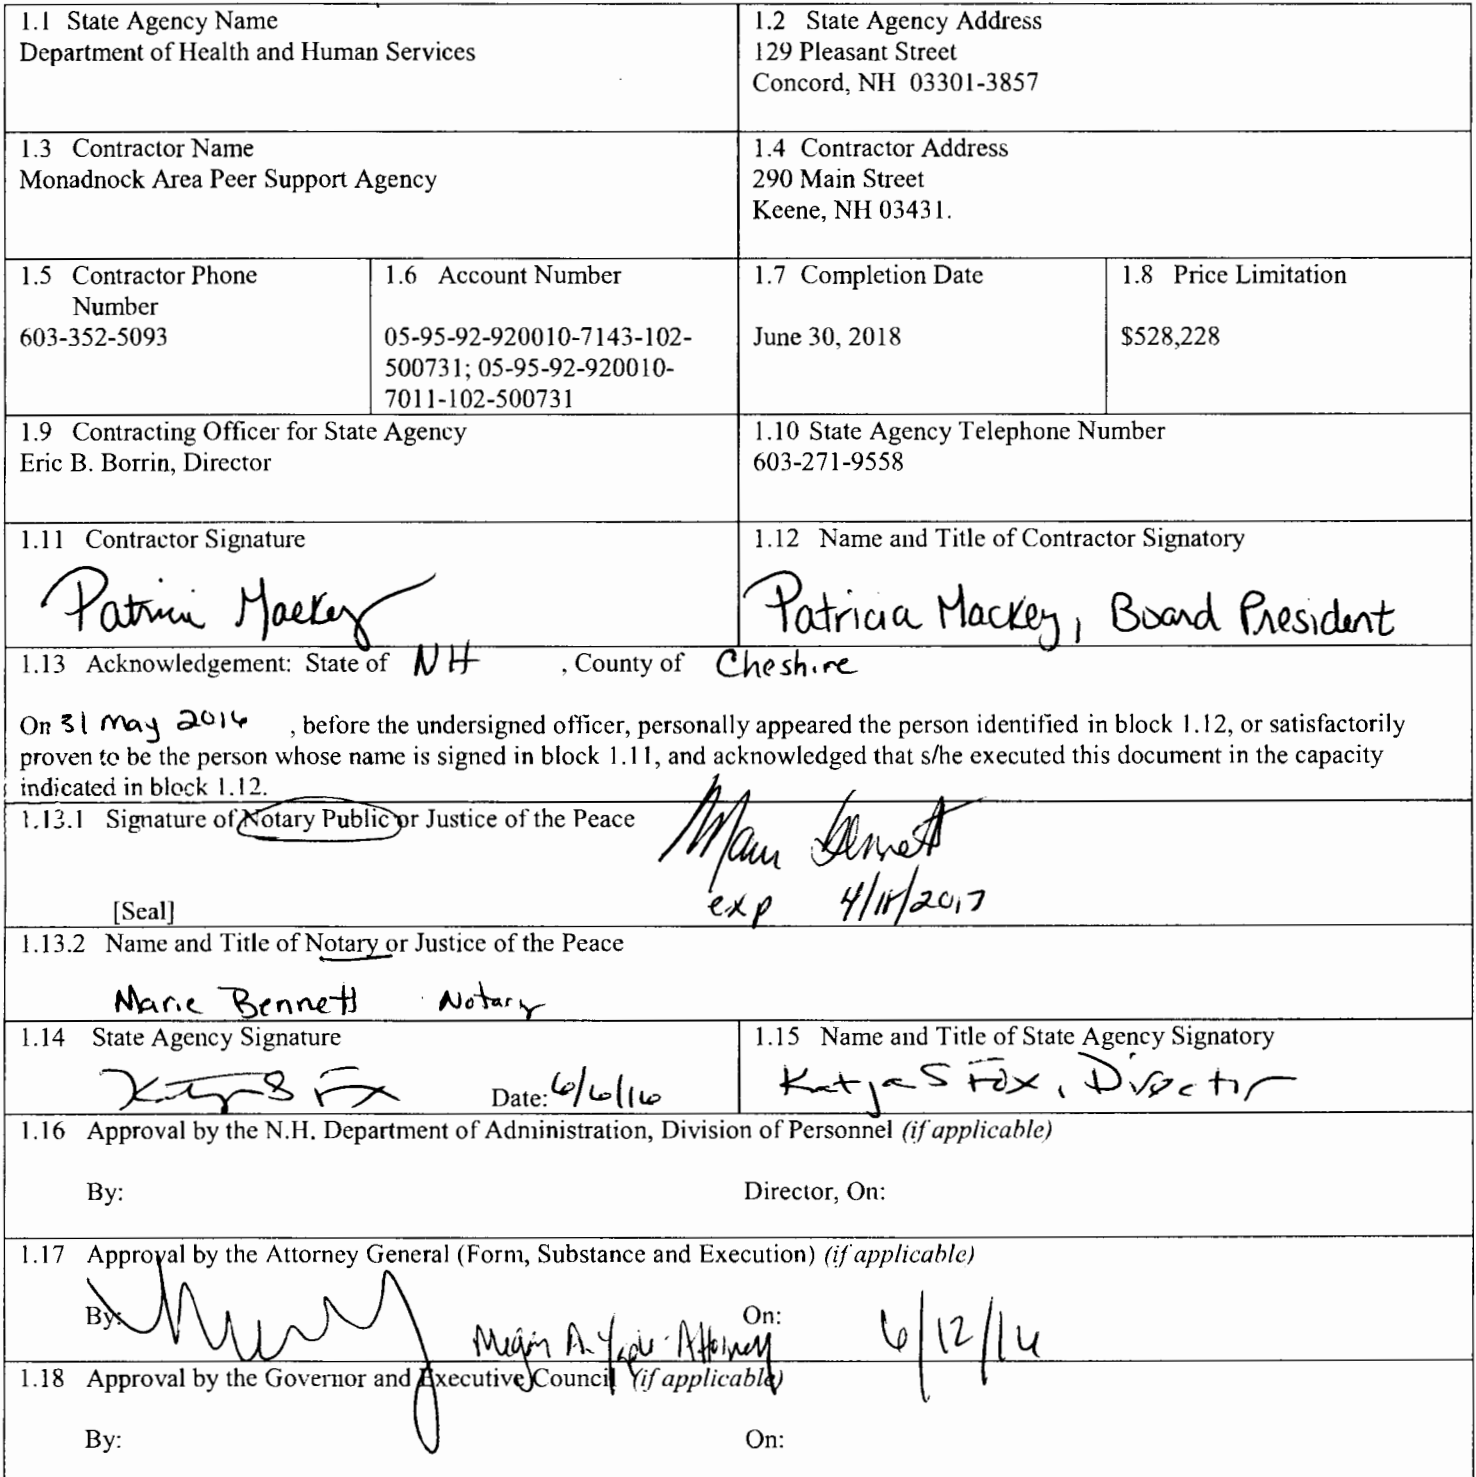 1.1 State Agency Name
Department of Health and Human Services
1.2 State Agency Address
129 Pleasant Street
Concord, NH 03301-3857
1.3 Contractor Name
Monadnock Area Peer Support Agency
1.4 Contractor Address
290 Main Street
Keene, NH 03431.
1.5 Contractor Phone
Number
603-352-5093
1.6 Account Number
05-95-92-920010-7143-102-
500731; 05-95-92-920010-
7011-102-500731
1.7 Completion Date
June 30, 2018
1.8 Price Limitation
$528,228
1.9 Contracting Officer for State Agency
Eric B. Borrin, Director
1.10 State Agency Telephone Number
603-271-9558
1.11 Contractor Signature
Patricia Mackey
1.12 Name and Title of Contractor Signatory
Patricia Mackey, Board President
1.13 Acknowledgement: State of NH , County of Cheshire
On 31 May 2016 , before the undersigned officer, personally appeared the person identified in block 1.12, or satisfactorily
proven to be the person whose name is signed in block 1.11, and acknowledged that s/he executed this document in the capacity
indicated in block 1.12.
1.13.1 Signature of Notary Public or Justice of the Peace
Marie Bennett
exp 4/18/2017
[Seal]
1.13.2 Name and Title of Notary or Justice of the Peace
Marie Bennett Notary
1.14 State Agency Signature
Katja S Fox Date: 6/6/16
1.15 Name and Title of State Agency Signatory
Katja S Fox, Director
1.16 Approval by the N.H. Department of Administration, Division of Personnel (if applicable)
By: Director, On:
1.17 Approval by the Attorney General (Form, Substance and Execution) (if applicable)
By: Megan A. - Attorney On: 6/12/16
1.18 Approval by the Governor and Executive Council (if applicable)
By: On: